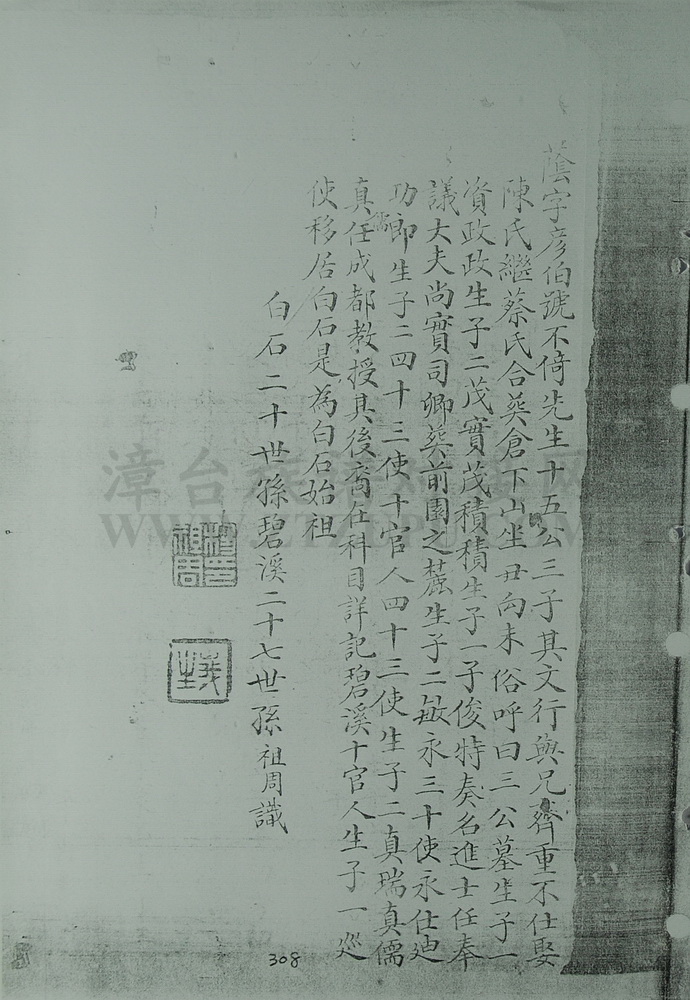 蔭字彥伯號不倚先生十五公三子其文行與兄齊重不仕娶
陳氏繼蔡氏合葬倉下山坐丑向未俗呼曰三公墓生子一
資政政生子二茂實茂積積生子一子俊特奏名進士任奉
議大夫尚寶司卿葬前園之麓生子二敏永三十使永仕迪
功郎生子二四十三使十官人四十三使生子二真瑞真儒
儒
真任成都教授其後裔在科目詳記碧溪十官人生子一巡
使移居白石是為白石始祖
白石二十世孫碧溪二十七世孫祖周識
祖周
308
漳台族譜
WWW.